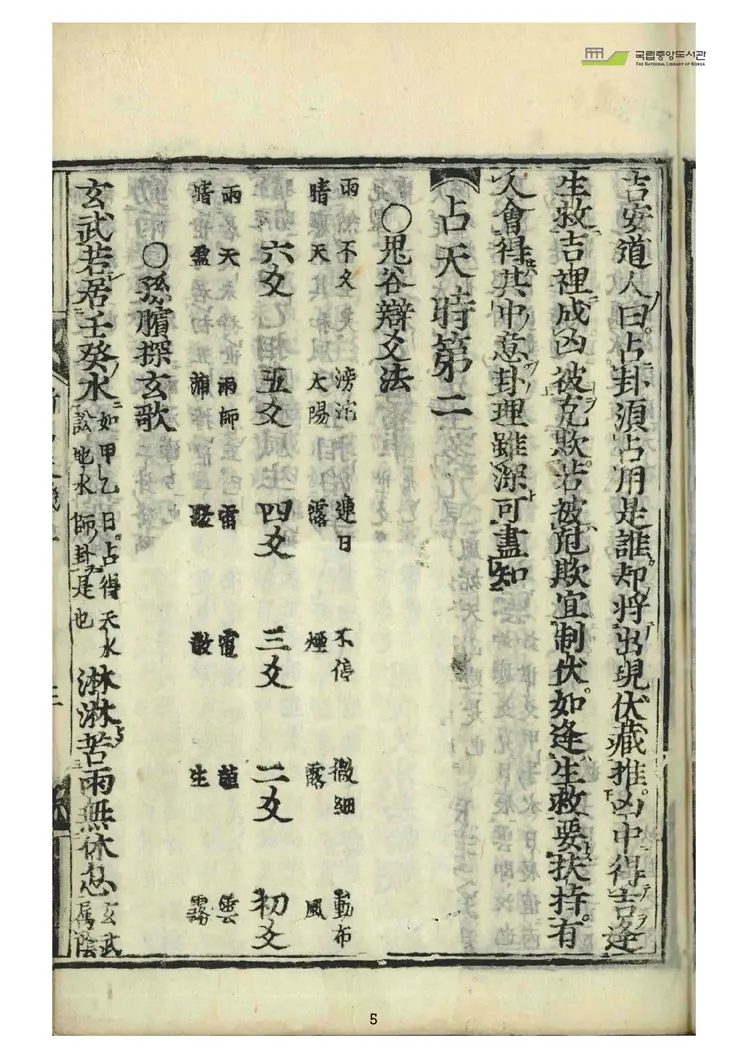 국립중앙도서관
THE NATIONAL LIBRARY OF KOREA
吉安道人曰占卦須占用是誰却將出現伏藏推凶中得吉逢
生救吉裡成凶被克欺若被克欺宜制伏如逢生救要扶持有
人會得其中意卦理雖深可盡知
占天時第二
○鬼谷辯爻法
雨 不久 滂沱 連日 不停 微細 動布
晴 天 太陽 露 煙 露 風
六爻 五爻 四爻 三爻 二爻 初爻
雨 天 雨師 雷 電 龍 雲
晴 生 霧
○孫臏探玄歌
玄武若居壬癸水 如甲乙日占得天水 訟地水師卦是也 淋淋苦雨無休息 玄武 属陰
三
5